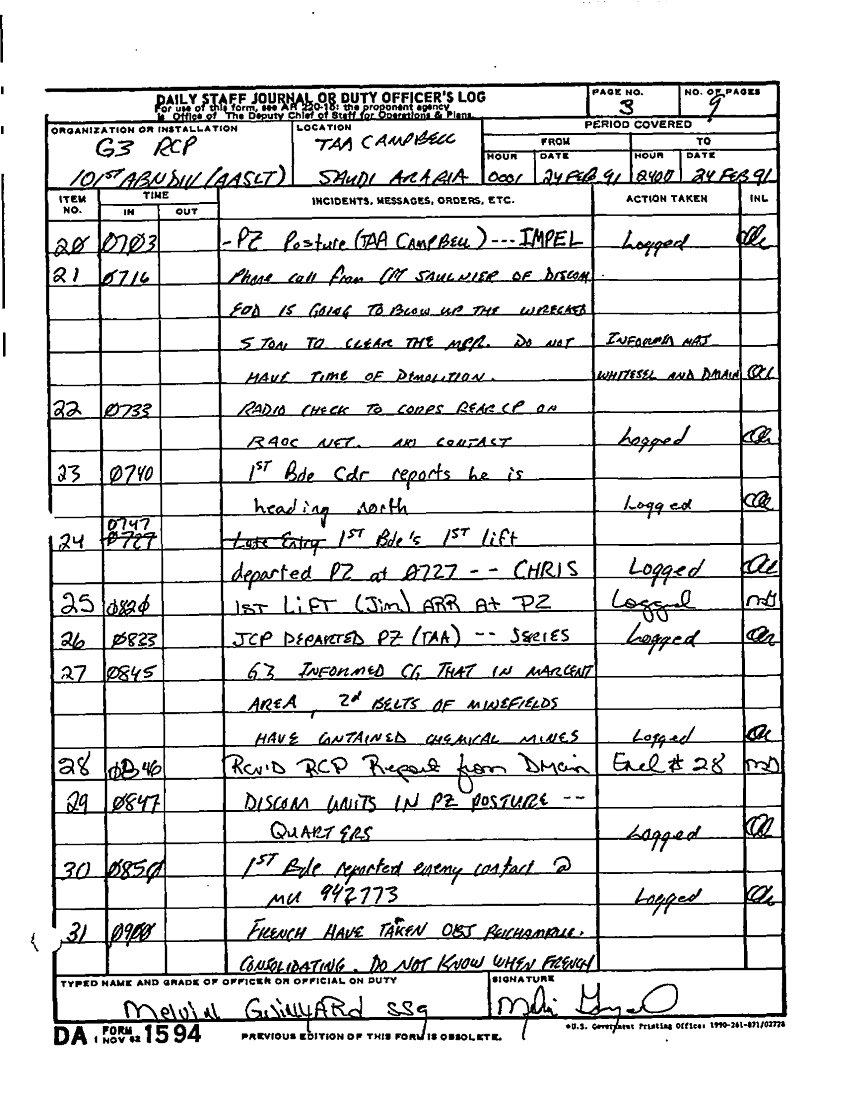 DAILY STAFF JOURNAL OR DUTY OFFICER'S LOG
For use of this form, see AR 220-15; the proponent agency
is Office of The Deputy Chief of Staff for Operations & Plans.
PAGE NO.
3
NO. OF PAGES
9
ORGANIZATION OR INSTALLATION
G3 RCP
101ST ABN DIV (AASLT)
LOCATION
TAA CAMPBELL
SAUDI ARABIA
PERIOD COVERED
FROM
TO
HOUR DATE HOUR DATE
0001 24 FEB 91 2400 24 FEB 91
ITEM NO. TIME IN OUT INCIDENTS, MESSAGES, ORDERS, ETC. ACTION TAKEN INL
20 0703 - PZ Posture (TAA CAMPBELL) --- IMPEL Logged
21 0716 Phone call from CPT SAULNIER OF DISCOM
EOD IS GOING TO BLOW UP THE WRECKED
5 TON TO CLEAR THE MSR. DO NOT INFORMED MAJ
HAVE TIME OF DEMOLITION. WHITESEL AND DMAIN
22 0733 RADIO CHECK TO CORPS REAR CP ON
RAOC NET. CONTACT Logged
23 0740 1ST Bde Cdr reports he is
heading north Logged
0747
24 0727 Late Entry 1ST Bde's 1ST lift
departed PZ at 0727 -- CHRIS Logged
25 0820 1ST LIFT (Jim) ARR At PZ Logged
26 0823 JCP DEPARTED PZ (TAA) -- SERIES Logged
27 0845 G3 INFORMED CG THAT IN MARCENT
AREA, 2d BELTS OF MINEFIELDS
HAVE CONTAINED CHEMICAL MINES Logged
28 0846 Rcv'd RCP Report from DMain Encl # 28
29 0847 DISCOM UNITS IN PZ POSTURE --
QUARTERS Logged
30 0850 1ST Bde reported enemy contact @
MU 942773 Logged
31 0900 FRENCH HAVE TAKEN OBJ
CONSOLIDATING. DO NOT KNOW WHEN FRENCH
TYPED NAME AND GRADE OF OFFICER OR OFFICIAL ON DUTY
Melvin SSg
SIGNATURE
DA FORM 1594
1 NOV 62
PREVIOUS EDITION OF THIS FORM IS OBSOLETE.
*U.S. Government Printing Office: 1990-261-871/02728